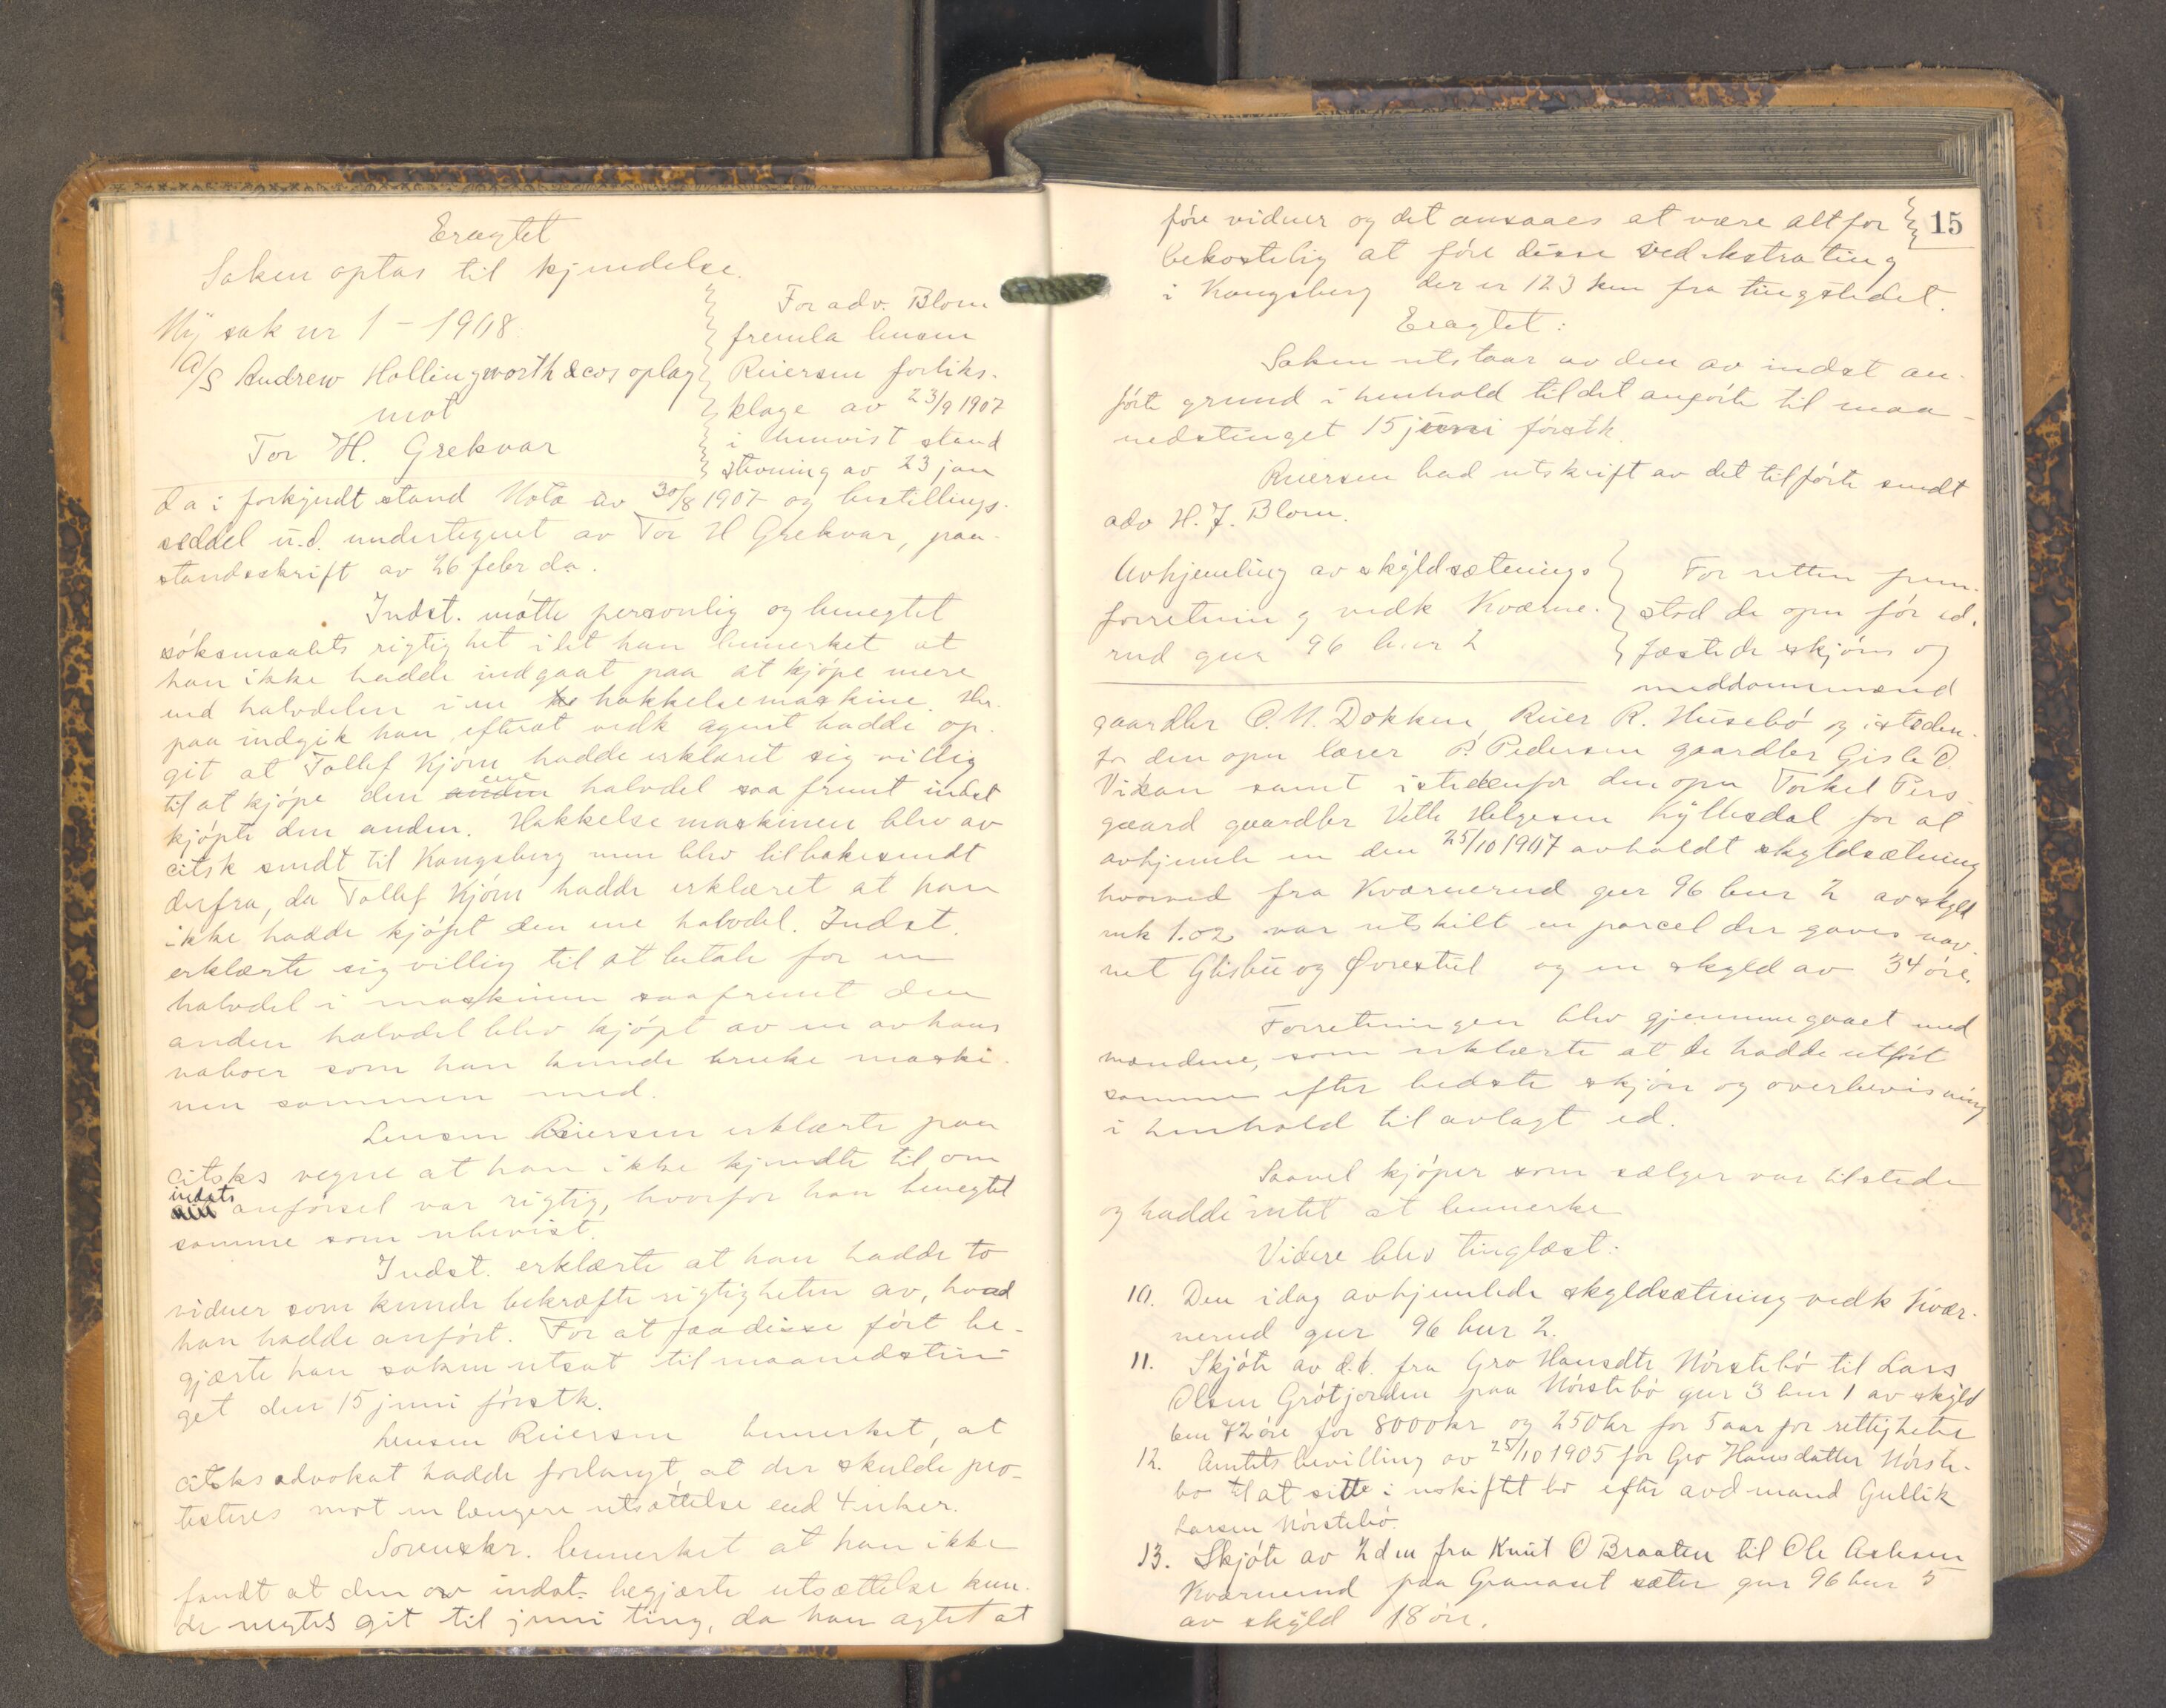 Eragtet
Saken optas til kjendelse.
Ny sak nr 1 – 1908.
A/S Andrew Hollingworth & cos oplag
mot
Tor H. Grekvar
For adv. Blom
fremla lensm
Reiersen forliks-
klage av 23/9 1907
i henvist stand
stevning av 23 jan
da i forkyndt stand Nota av 30/8 1907 og bestillings-
seddel u.d. undertegnet av Tor H Grekvar, paa-
standsskrift av 26 febr da.
Indst. møtte personlig og benegtet
søksmaalets rigtighet idet han bemerket at
han ikke hadde indgaat paa at kjøpe mere
end halvdelen i en hakkelsemaskine. Her-
paa indgik han efterat vedk agent hadde op-
git at Tollef Kjøm hadde erklæret sig villig
til at kjøpe den ene halvdel saafremt indst
kjøpte den anden. Hakkelsemaskinen blev av
citsk sendt til Kongsberg men blev tilbakesendt
derfra, da Tollef Kjøm hadde erklæret at han
ikke hadde kjøpt den ene halvdel. Indst.
erklærte sig villig til at betale for en
halvdel i maskinen saafremt den
anden halvdel blev kjøpt av en av hans
naboer som han kunde bruke maski-
nen sammen med.
Lensm Reiersen erklærte paa
citsks vegne at han ikke kjendte til om
indsts anførsel var rigtig, hvorfor han benegtet
samme som ubevist.
Indst. erklærte at han hadde to
vidner som kunde bekræfte rigtigheten av, hvad
han hadde anført. For at faa disse ført be-
gjærte han saken utsat til maanedstin-
get den 15 juni førstk.
Lensm Reiersen bemerket, at
citsks advokat hadde forlangt at der skulde pro-
testeres mot en længere utsættelse end 4 uker.
Sorenskr. bemerket at han ikke
fandt at den av indst. begjærte utsættelse kun-
de negtes git til juni ting, da han agtet at
15
føre vidner og det ansaaes at være altfor
bekostelig at føre disse ved ekstrating
i Kongsberg der er 123 km fra tingstedet.
Eragtet:
Saken utstaar av den av indst an-
førte grund i henhold til det anførte til maa-
nedstinget 15 juni førstk.
Reiersen bad utskrift av det tilførte sendt
adv H. J. Blom.
Avhjemling av skyldsætnings
forretning vedk Kværne-
rud gnr 96 bnr 2
For retten frem-
stod de opn før ed-
fæstede skjøns og
meddommsmænd
gaardbr O. N. Dokken, Reier R. Husebø og isteden-
for den opn lærer P. Pedersen gaardbr Gisle O.
Vikan samt istedenfor den opn Torkel Pers-
gaard gaardbr Velle Helgesen Kyllesdal for at
avhjemle en den 25/10 1907 avholdt skyldsætning
hvorved fra Kværnerud gnr 96 bnr 2 av skyld
mk 1.02 var utskilt en parcel der gaves nav-
net Glisbu og Øvrestul og en skyld av 34 øre.
Forretningen blev gjennemgaaet med
mændene, som erklærte at de hadde utført
samme efter bedste skjøn og overbevisning
i henhold til avlagt ed.
Saavel kjøper som sælger var tilstede
og hadde intet at bemerke
Videre blev tinglæst:
10. Den idag avhjemlede skyldsætning vedk Kvær-
nerud gnr 96 bnr 2.
11. Skjøte av d.d. fra Gro Hansdtr Nørstebø til Lars
Olsen Grøtjorden paa Nørstebø gnr 3 bnr 1 av skyld
72 øre for 8000 kr og 250 kr for 5 aar for rettigheter
12. Amtets bevilling av 25/10 1905 for Gro Hansdatter Nørste-
bø til at sitte i uskiftet bo efter avd mand Gullik
Larsen Nørstebø.
13. Skjøte av 2 dm fra Knut O Braaten til Ole Aslesen
Kværnerud paa Granaset sæter gnr 96 bnr 5
av skyld 18 øre.